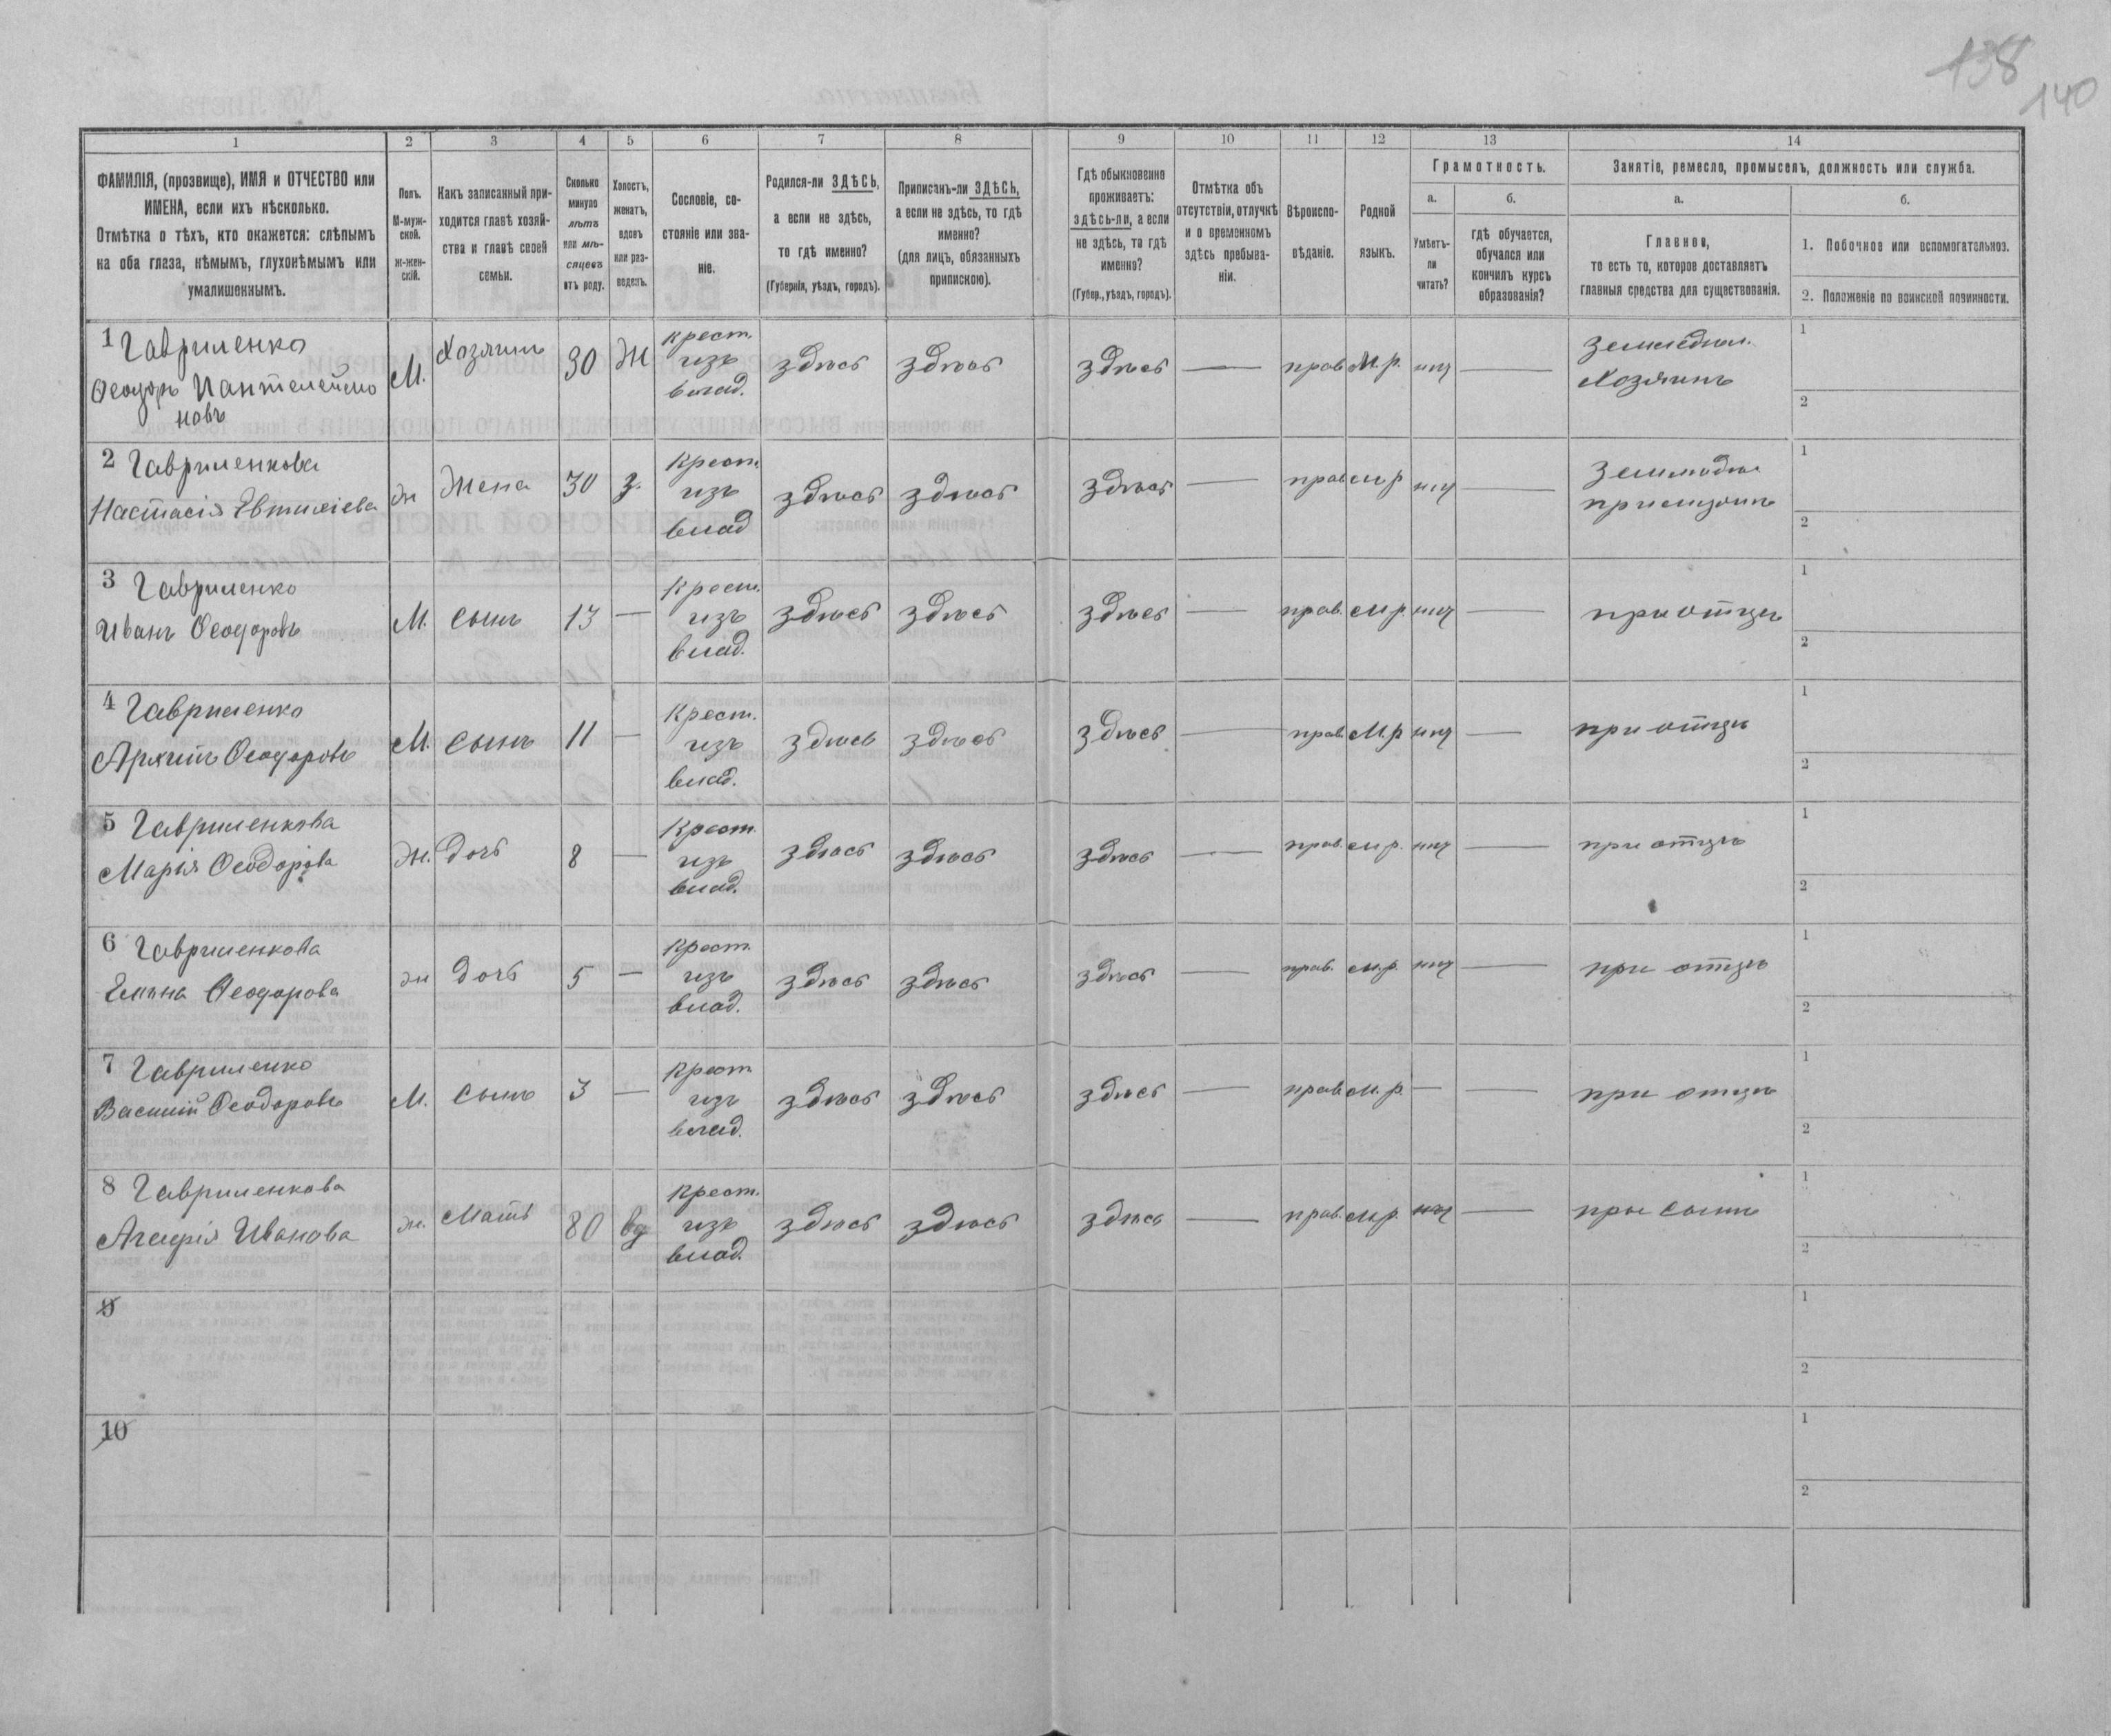 138
140
1 2 3 4 5 6 7 8 9 10 11 12 13 14
ФАМИЛІЯ, (прозвище), ИМЯ и ОТЧЕСТВО или
ИМЕНА, если ихъ нѣсколько.
Отмѣтка о тѣхъ, кто окажется: слѣпымъ
на оба глаза, нѣмымъ, глухонѣмымъ или
умалишеннымъ.
Полъ.
М-муж-
ской.
Ж-жен-
скій.
Какъ записанный при-
ходится главѣ хозяй-
ства и главѣ своей
семьи.
Сколько
минуло
лѣтъ
или мѣ-
сяцевъ
отъ роду.
Холостъ,
женатъ,
вдовъ
или раз-
веденъ.
Сословіе, со-
стояніе или зва-
ніе.
Родился-ли ЗДѢСЬ,
а если не здѣсь,
то гдѣ именно?
(Губернія, уѣздъ, городъ).
Приписанъ-ли ЗДѢСЬ,
а если не здѣсь, то гдѣ
именно?
(для лицъ, обязанныхъ
припискою).
Гдѣ обыкновенно
проживаетъ:
здѣсь-ли, а если
не здѣсь, то гдѣ
именно?
(Губер., уѣздъ, городъ).
Отмѣтка объ
отсутствіи, отлучкѣ
и о временномъ
здѣсь пребыва-
ніи.
Вѣроиспо-
вѣданіе.
Родной
языкъ.
Грамотность.
а. б.
Умѣетъ-
ли
читать?
гдѣ обучается,
обучался или
кончилъ курсъ
образованія?
Занятіе, ремесло, промыселъ, должность или служба.
а. б.
Главное,
то есть то, которое доставляетъ
главныя средства для существованія.
1. Побочное или вспомогательное.
2. Положеніе по воинской повинности.
1 Гавриленко
Ѳеодоръ Пантелеймо
новъ
М. Хозяинъ 30 Ж
крест.
изъ
влад.
здѣсь здѣсь здѣсь — прав. М.р. нѣт —
Земледѣл.
Хозяинъ
1
2
2 Гавриленкова
Настасія Евтихіева
ж Жена 30 з.
Крест.
изъ
влад
здѣсь здѣсь здѣсь — прав м р нѣт —
Земледѣл
при мужѣ
1
2
3 Гавриленко
Иванъ Ѳеодоровъ
М. сынъ 13 —
Крест.
изъ
влад.
здѣсь здѣсь здѣсь — прав. м р. нѣт — при отцѣ
1
2
4 Гавриленко
Архипъ Ѳеодоровъ
М. сынъ 11 —
Крест.
изъ
влад.
здѣсь здѣсь здѣсь — прав. М.р нѣт — при отцѣ
1
2
5 Гавриленкова
Марія Ѳеодорова
Ж. дочь 8 —
Крест.
изъ
влад.
здѣсь здѣсь здѣсь — прав. м р. нѣт — при отцѣ
1
2
6 Гавриленкова
Елѣна Ѳеодорова
ж дочь 5 —
Крест.
изъ
влад.
здѣсь здѣсь здѣсь — прав. м.р. нѣт — при отцѣ
1
2
7 Гавриленко
Василій Ѳеодоровъ
М. сынъ 3 —
Крест
изъ
влад.
здѣсь здѣсь здѣсь — прав. м.р. — — при отцѣ
1
2
8 Гавриленкова
Иванова
ж. Мать 80 вд
Крест.
изъ
влад.
здѣсь здѣсь здѣсь — прав. м.р. нѣт — при сынѣ
1
2
9
1
2
10
1
2